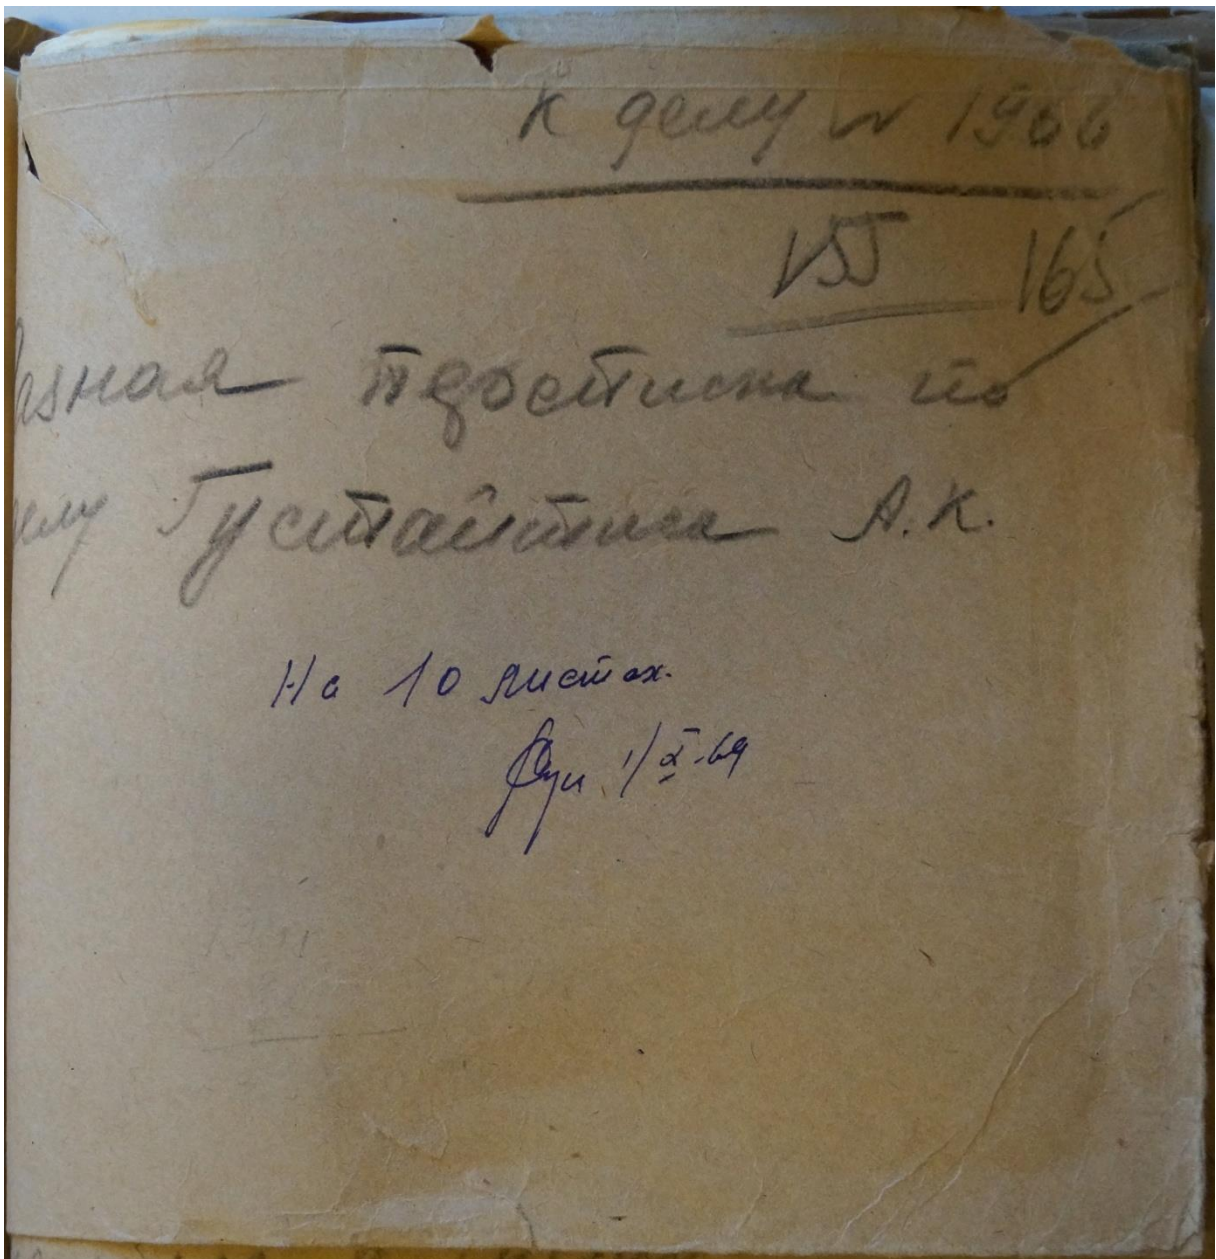 К делу № 1966
155 165
азная переписка по
делу Густайтиса А.К.
На 10 листах.
1/X-69